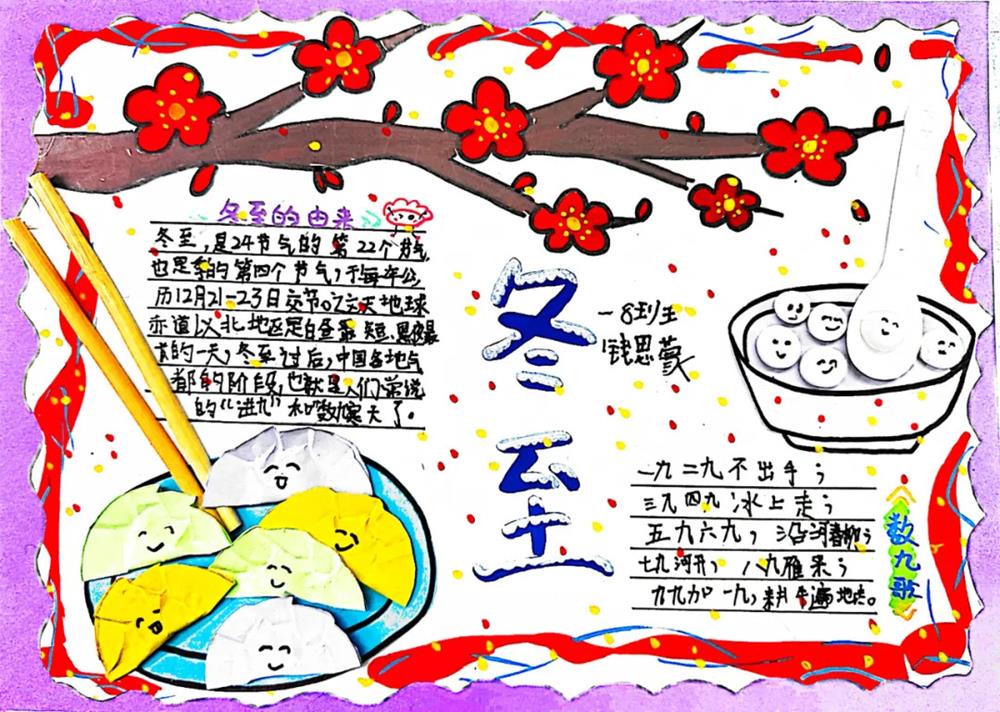 冬至的由来
冬至，是24节气的第22个节气
也是季的第四个节气，于每年公
历12月21-23日交节。这天地球
赤道以北地区是白昼最短、黑夜最
长的一天，冬至过后，中国各地气
都的阶段，也就是人们常说
的“进九”和数寒天了。
冬至
一8班王
钱思蕺
一九二九不出手；
三九四九冰上走；
五九六九，沿河春柳；
七九河开，八九雁来；
九九加一九，耕牛遍地走。
数九歌